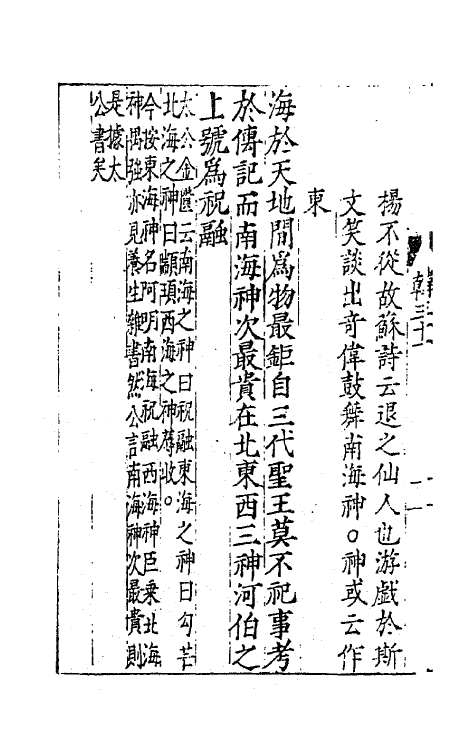 韓三十一
楊不從故蘇詩云退之仙人也游戲於斯
文笑談出奇偉鼓舞南海神○神或云作
東
海於天地間爲物最鉅自三代聖王莫不祀事考
於傳記而南海神次最貴在北東西三神河伯之
上號爲祝融
太公金匱云南海之神曰祝融東海之神曰勾芒
北海之神曰顓頊西海之神蓐收。
今按東海神名阿明南海祝融西海神臣乗北海
神禺強亦見養生雜書然公言南海神次最貴則
是據太
公書矣